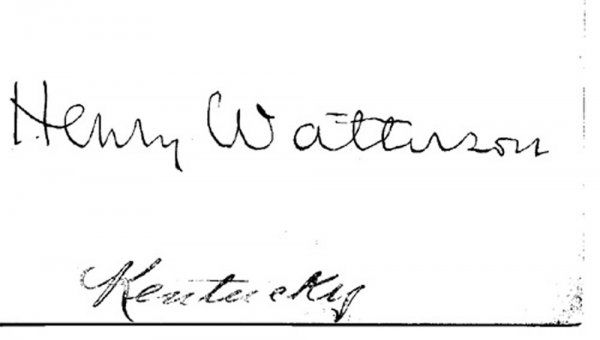 Henry Watterson
Kentucky